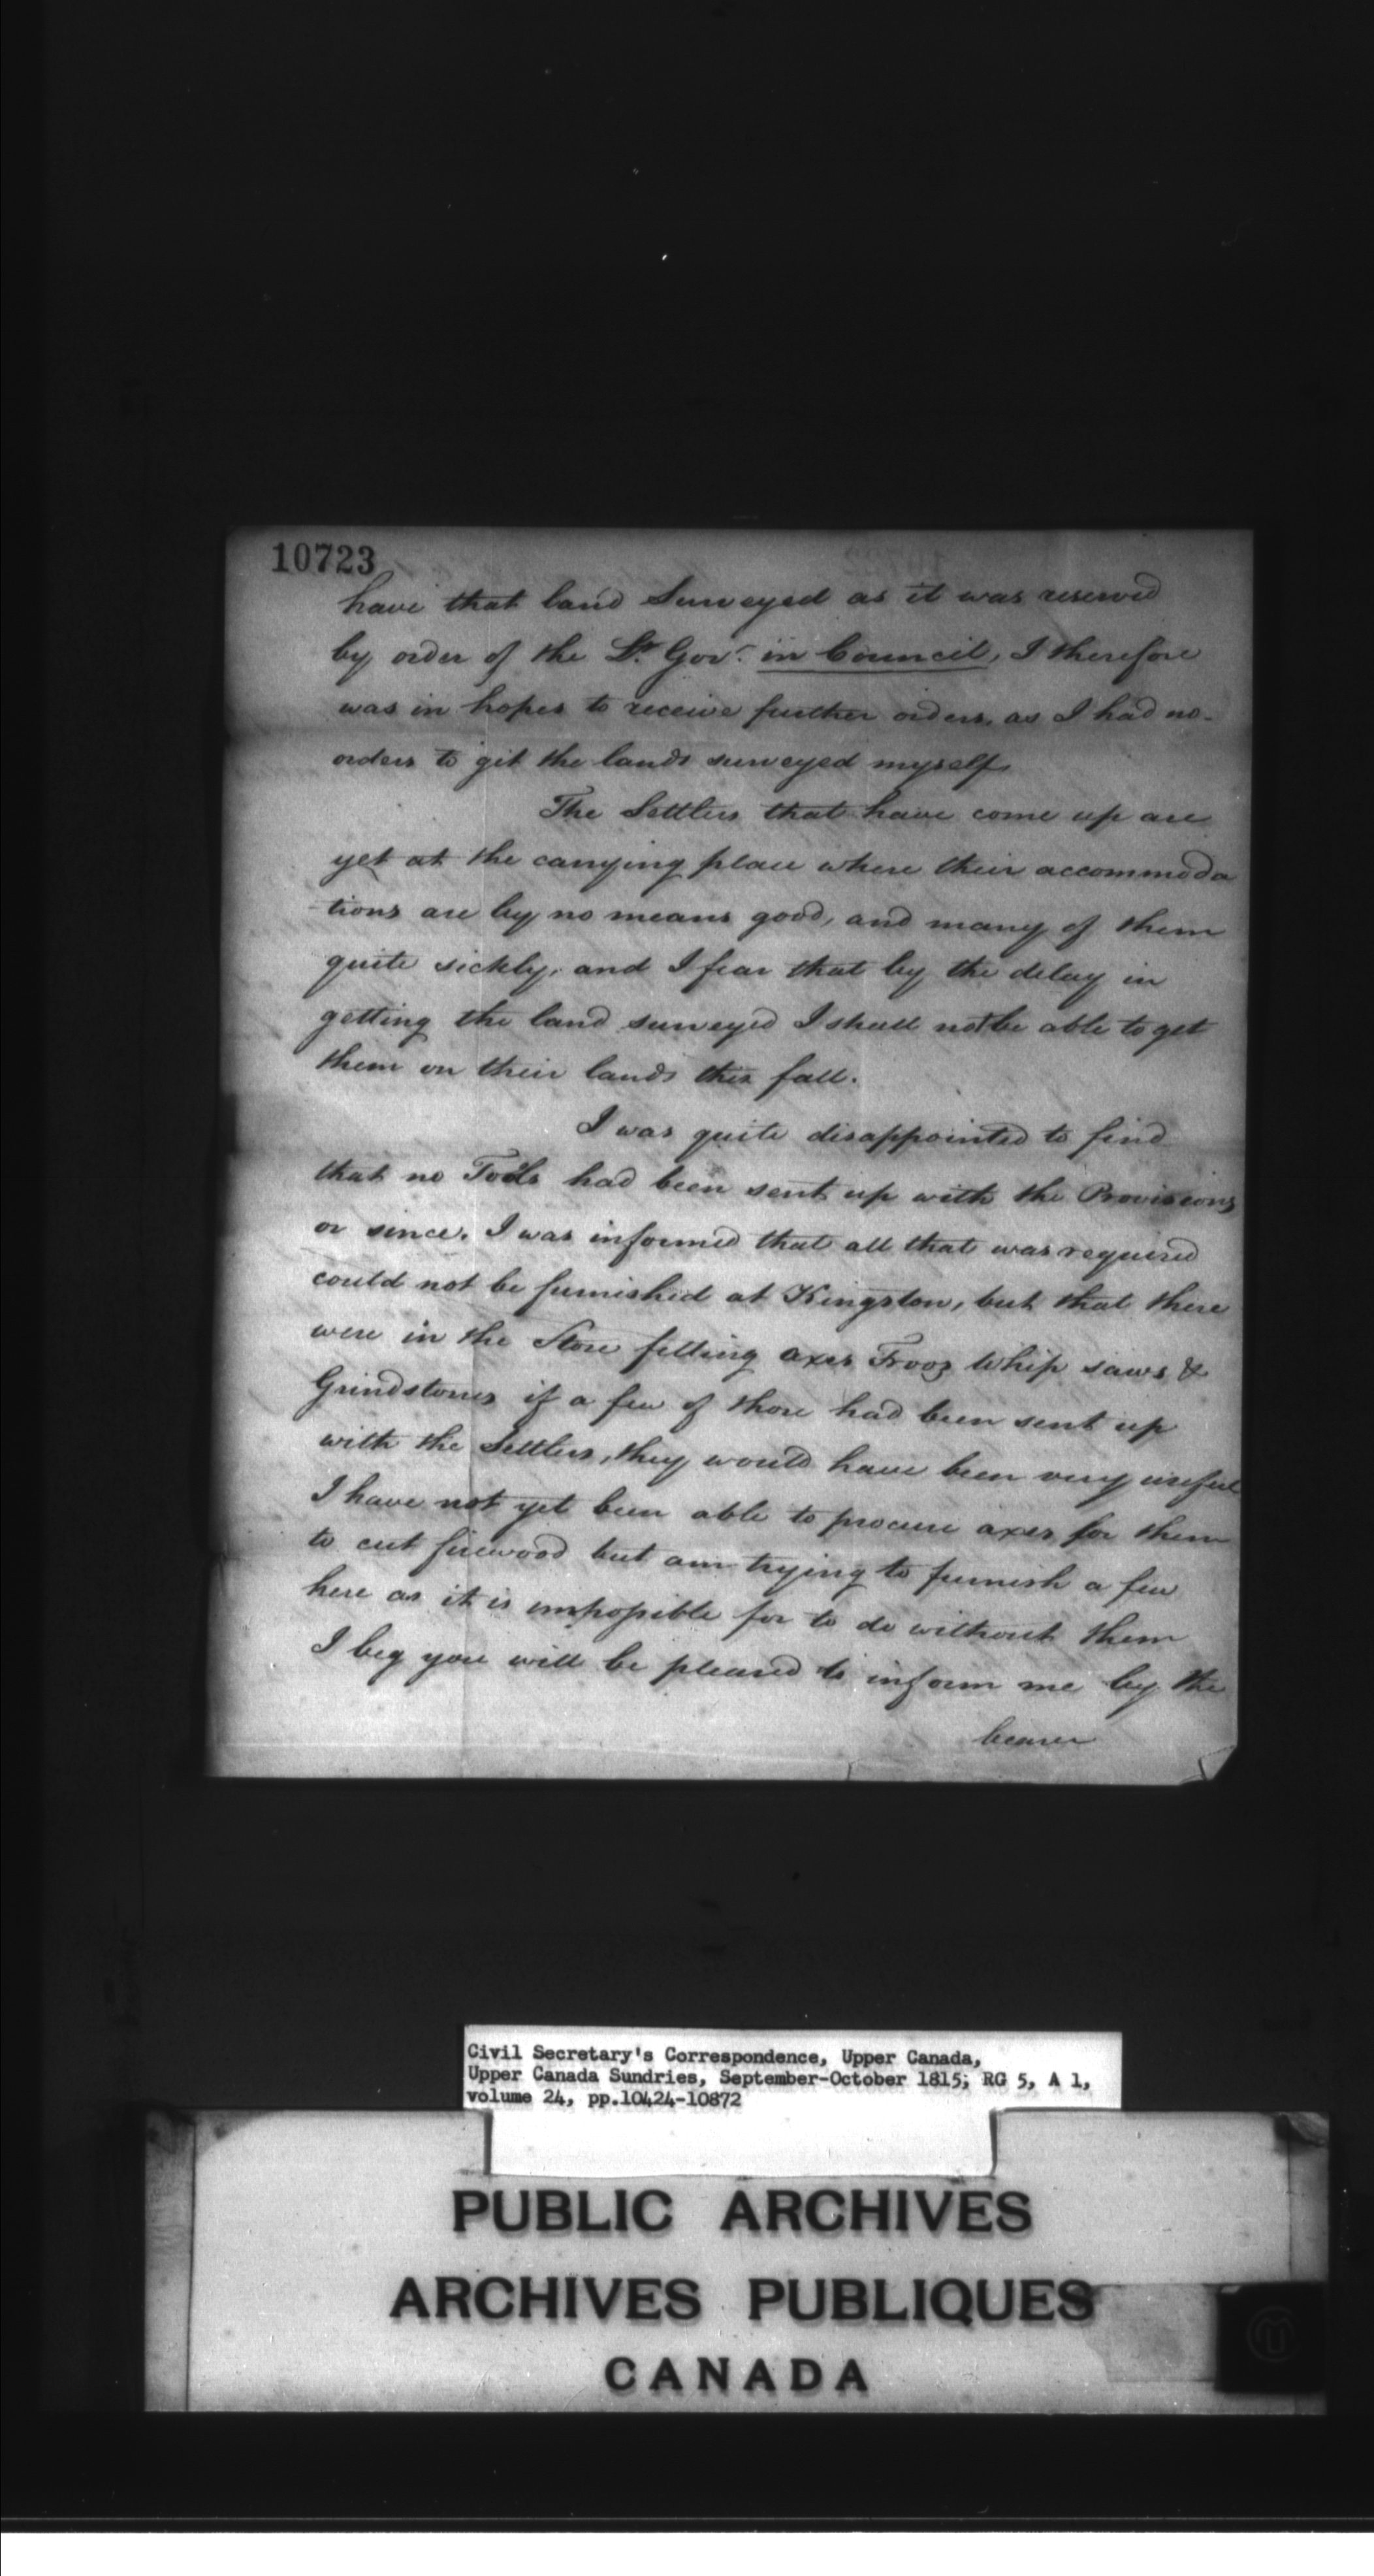 10723
have that land Surveyed as it was reserved
by order of the Lt. Govr. in Council, I therefore
was in hopes to receive further orders, as I had no
orders to git the lands surveyed myself
The Settlers that have come up are
yet at the carrying place where their accommoda
tions are by no means good, and many of them
quite sickly, and I fear that by the delay in
getting the land surveyed I shall not be able to get
them on their lands this fall.
I was quite disappointed to find
that no Tools had been sent up with the Provisions
or since. I was informed that all that was required
could not be furnished at Kingston, but that there
were in the Store felling axes Froos Whip saws &
Grindstones if a few of those had been sent up
with the Settlers, they would have been very useful
I have not yet been able to procure axes for them
to cut firewood but am trying to furnish a few
here as it is impossible for to do without them
I beg you will be pleased to inform me by the
bearer
Civil Secretary's Correspondence, Upper Canada,
Upper Canada Sundries, September-October 1815; RG 5, A 1,
volume 24, pp.10424-10872
PUBLIC ARCHIVES
ARCHIVES PUBLIQUES
CANADA